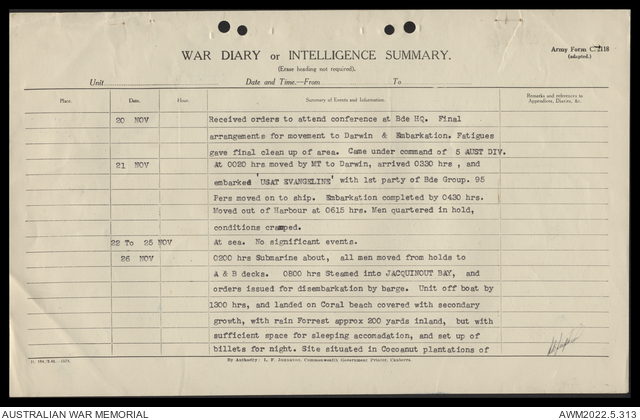 WAR DIARY or INTELLIGENCE SUMMARY.
Army Form C. 2118
(adapted.)
(Erase heading not required).
Unit Date and Time.—From To
Place. Date. Hour. Summary of Events and Information. Remarks and references to
Appendices, Diaries, &c.
20 NOV Received orders to attend conference at Bde HQ. Final
arrangements for movement to Darwin & Embarkation. Fatigues
gave final clean up of area. Came under command of 5 AUST DIV.
21 NOV At 0020 hrs moved by MT to Darwin, arrived 0330 hrs , and
embarked 'USAT EVANGELINE' with 1st party of Bde Group. 95
Pers moved on to ship. Embarkation completed by 0430 hrs.
Moved out of Harbour at 0615 hrs. Men quartered in hold,
conditions cramped.
22 To 25 NOV At sea. No significant events.
26 NOV 0200 hrs Submarine about, all men moved from holds to
A & B decks. 0800 hrs Steamed into JACQUINOUT BAY, and
orders issued for disembarkation by barge. Unit off boat by
1300 hrs, and landed on Coral beach covered with secondary
growth, with rain Forrest approx 200 yards inland, but with
sufficient space for sleeping accomadation, and set up of
billets for night. Site situated in Cocoanut plantations of
By Authority: L. F. Johnston, Commonwealth Government Printer, Canberra.
AUSTRALIAN WAR MEMORIAL AWM2022.5.313